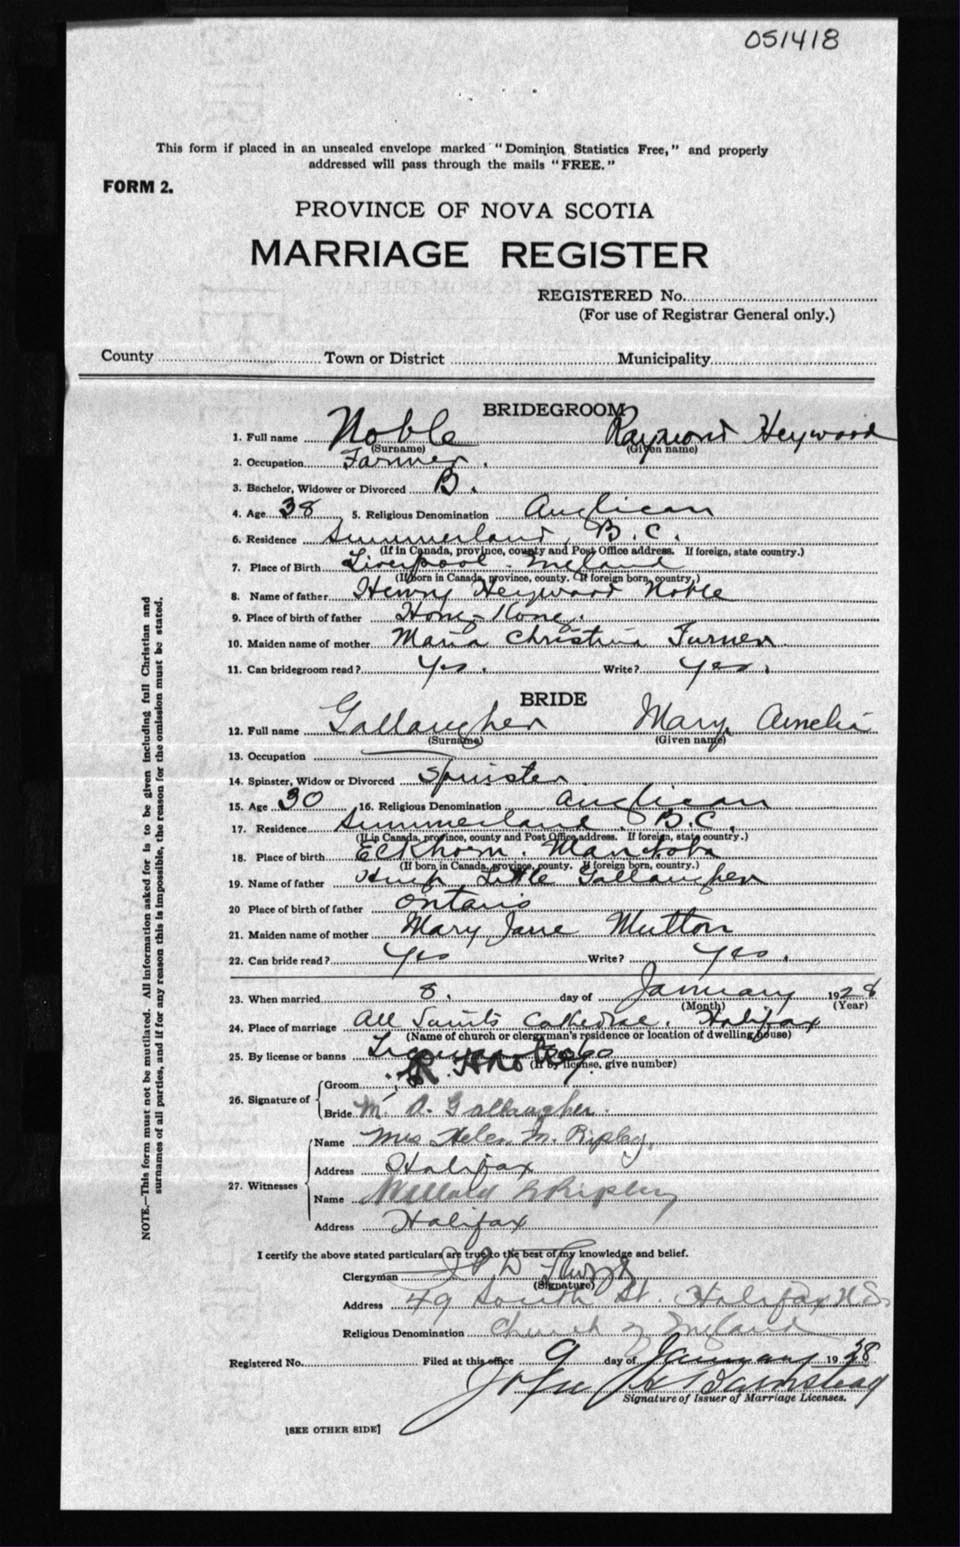 051418
This form if placed in an unsealed envelope marked "Dominion Statistics Free," and properly
addressed will pass through the mails "FREE."
FORM 2.
PROVINCE OF NOVA SCOTIA
MARRIAGE REGISTER
REGISTERED No.
(For use of Registrar General only.)
County Town or District Municipality
BRIDEGROOM
1. Full name Noble Raymond Heywood
(Surname) (Given name)
2. Occupation Farmer.
3. Bachelor, Widower or Divorced B.
4. Age 38 5. Religious Denomination Anglican
6. Residence Summerland, B.C.
(If in Canada, province, county and Post Office address. If foreign, state country.)
7. Place of Birth Liverpool. England
(If born in Canada, province, county. If foreign born, country.)
8. Name of father Henry Heywood Noble
9. Place of birth of father Hong Kong.
10. Maiden name of mother Maria Christina Turner
11. Can bridegroom read? Yes. Write? Yes.
BRIDE
12. Full name Gallaugher Mary Amelia
(Surname) (Given name)
13. Occupation
14. Spinster, Widow or Divorced Spinster
15. Age 30 16. Religious Denomination Anglican
17. Residence Summerland, B.C.
(If in Canada, province, county and Post Office address. If foreign, state country.)
18. Place of birth Eckhorn. Manitoba
(If born in Canada, province, county. If foreign born, country.)
19. Name of father Hugh Little Gallaugher
20 Place of birth of father Ontario
21. Maiden name of mother Mary Jane Mutton
22. Can bride read? Yes Write? Yes.
23. When married 8. day of January 1928
(Month) (Year)
24. Place of marriage All Saints Cathedral. Halifax
(Name of church or clergyman's residence or location of dwelling house)
25. By license or banns License
(If by license, give number)
26. Signature of Groom
Bride M. A. Gallaugher.
27. Witnesses Name Mrs Helen M. Ripley.
Address Halifax
Name Ripley
Address Halifax
I certify the above stated particulars are true to the best of my knowledge and belief.
Clergyman
(Signature)
Address 49 South St. Halifax N.S.
Religious Denomination Church of England
Registered No. Filed at this office 9 day of January 1928
John Barnstead
Signature of Issuer of Marriage Licenses.
[SEE OTHER SIDE]
NOTE.—This form must not be mutilated. All information asked for is to be given including full Christian and
surnames of all parties, and if for any reason this is impossible, the reason for the omission must be stated.